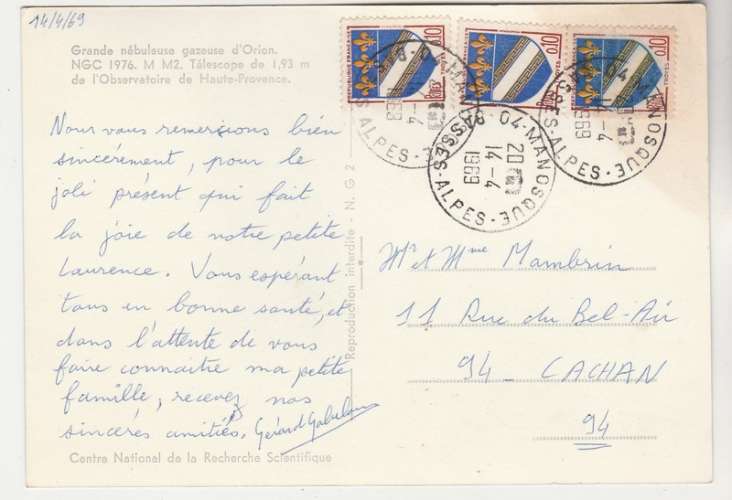 14/4/69
Grande nébuleuse gazeuse d'Orion.
NGC 1976. M M2. Télescope de 1,93 m
de l'Observatoire de Haute-Provence.
Nous vous remercions bien
sincèrement, pour le
joli présent qui fait
la joie de notre petite
Laurence. Vous espérant
tous en bonne santé, et
dans l'attente de vous
faire connaitre ma petite
famille, recevez nos
sincères amitiés. Gérard
Centre National de la Recherche Scientifique
Reproduction interdite - N. G 2
REPUBLIQUE FRANÇAISE
0,10
0,10
0,10
04-MANOSQUE
BASSES-ALPES
20H
14-4
1969
Mr et Mme Mambrin
11 Rue du Bel-Air
94 - CACHAN
94